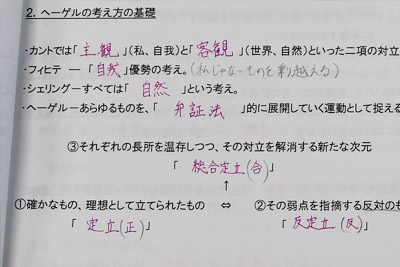 2. ヘーゲルの考え方の基礎
・カントでは「主観」(私、自我)と「客観」(世界、自然)といった二項の対立
・フィヒテ ―「自我」優勢の考え。(私じゃないものを乗り越える)
・シェリングーすべては「自然」という考え。
・ヘーゲルーあらゆるものを、「弁証法」的に展開していく運動として捉える
③それぞれの長所を温存しつつ、その対立を解消する新たな次元
「総合定立(合)」
↑
①確かなもの、理想として立てられたもの ⇔ ②その弱点を指摘する反対のも
「定立(正)」 「反定立(反)」